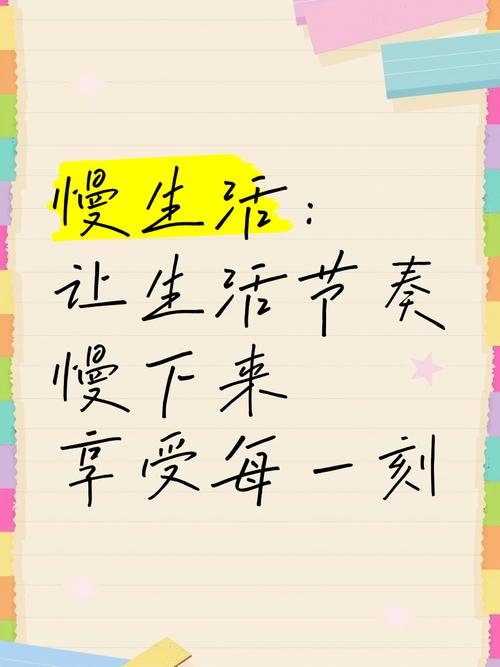 慢生活：
让生活节奏
慢下来
享受每一刻